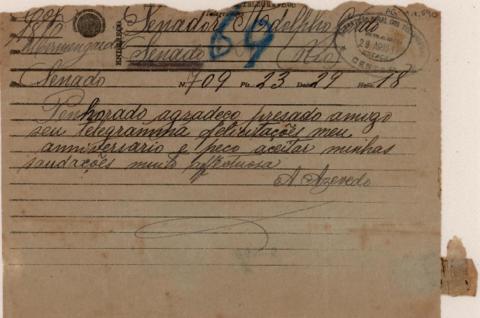 Senador
Senado Rio
Senado N. 709 Pls. 23 Data 29 Hora 18
Penhorado agradeço presado amigo
seu telegramma felicitações meu
anniversario e peço aceitar minhas
saudações muito affectuosa
A. Azevedo